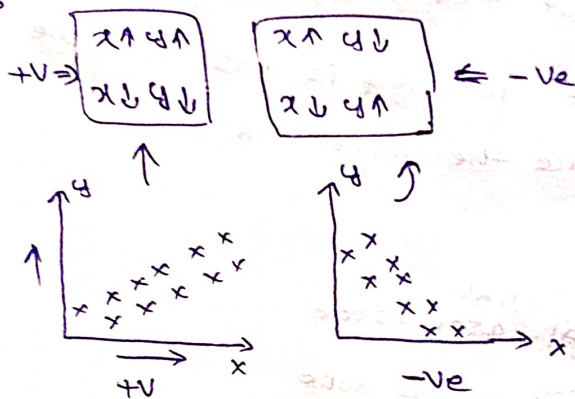 x↑ y↑
+V ⇒ x↓ y↓
x↑ y↓
x↓ y↑ ⇐ -ve
y
x
+V
y
x
-ve